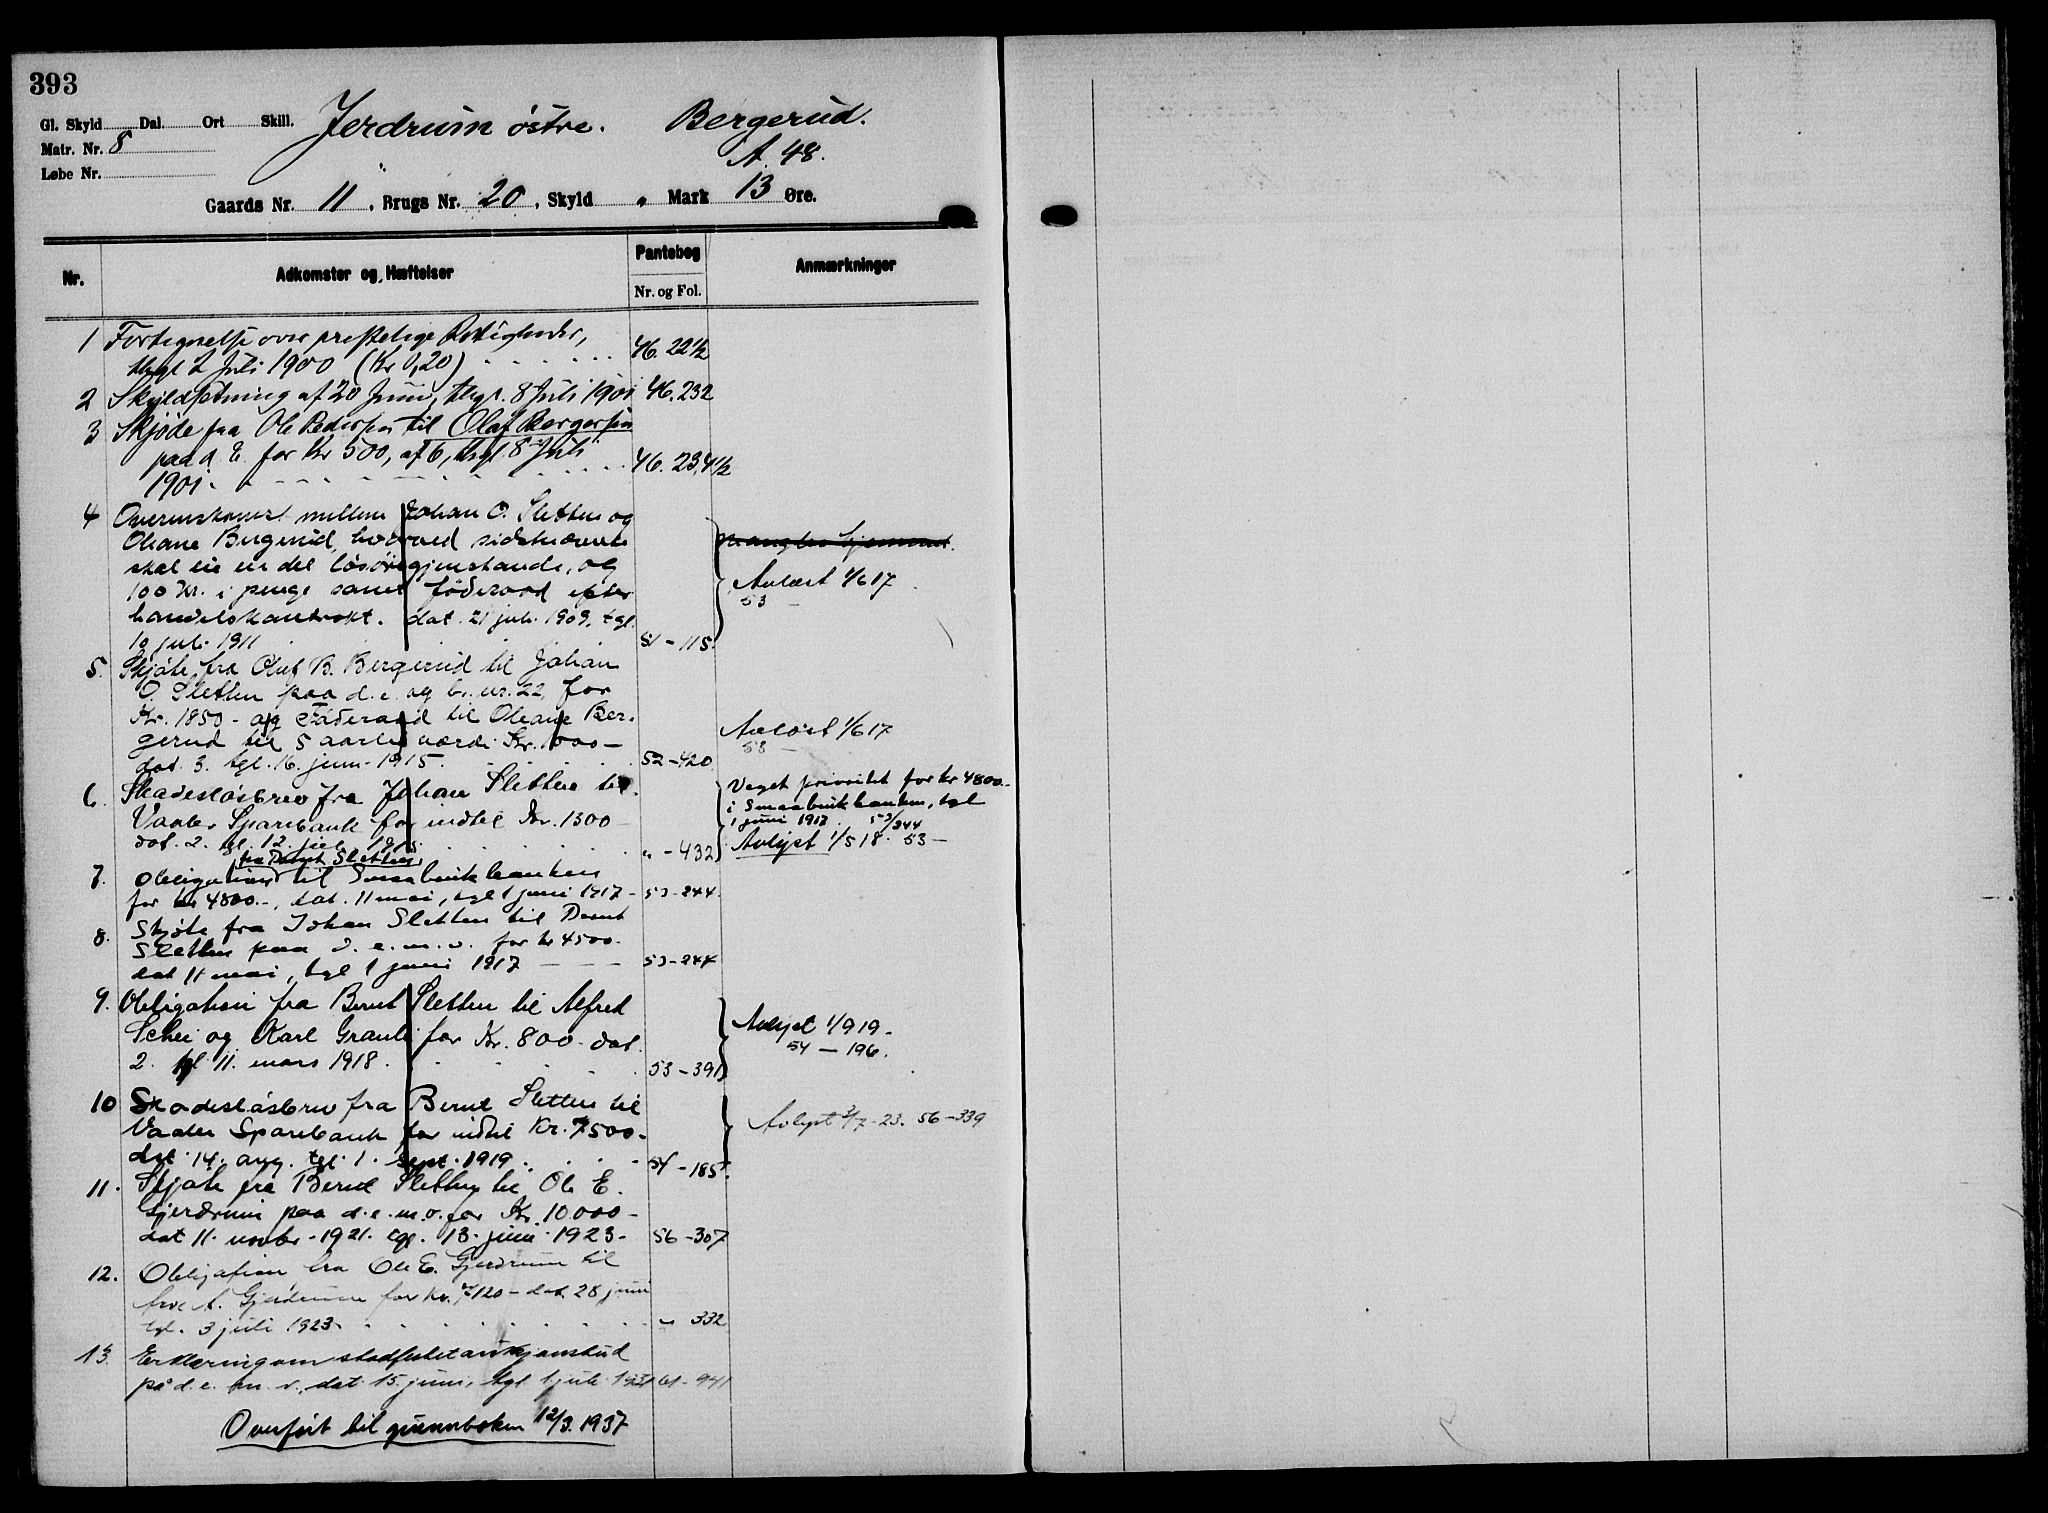 393
Gl. Skyld Dal. Ort Skill. Jerdrum østre. Bergerud.
Matr. Nr. 8 A. 48.
Løbe Nr.
Gaards Nr. 11, Brugs Nr. 20, Skyld " Mark 13 Øre.
Nr. Adkomster og Hæftelser Pantebog Nr. og Fol. Anmærkninger
1 Fortegnelse over præstelige Rettigheder,
thgl 2 Juli 1900 (Kr 0,20) 46. 22 1/2
2 Skyldsetning af 20 Juni, thgl. 8 Juli 1901 46. 232
3 Skjøde fra Ole Pedersen til Olaf Bergersen
paa d. E. for Kr 500, af 6, thgl 8 Juli
1901. 46. 234 1/2
4 Overenskomst mellem Johan O. Sletten og
Oleane Bergerud, hvorved sidstnævnte
skal eie en del løsøregjenstande, og
100 Kr. i penge samt føderaad efter
handelskontrakt. dat. 21 juli 1909, tgl.
10 juli 1911 51-115.
Avløst 1/6 17
53 -
5. Skjøte fra Oluf B. Bergerud til Johan
O. Sletten paa d. e. og br. nr. 22 for
Kr. 1850 - og Føderaad til Oleane Ber-
gerud til 5 aarlig værdi Kr. 1000 -
dat. 3. tgl. 16. juni 1915. 52-420
Avløst 1/6 17
53 -
6. Skadesløsbrev fra Johan Sletten til
Vaaler Sparebank for indtil Kr. 1300 -
dat. 2. tgl. 12. juli 1915. " - 432
Veget prioritet for kr 4800.-
i Smaabrukbanken, tgl
1 juni 1917. 53/244
Avlyst 1/5 18. 53 -
fra Bernt Sletten
7. Obligation til Smaabrukbanken
for kr 4800.-, dat. 11 mai, tgl 1 juni 1917 - 53-244.
8. Skjøte fra Johan Sletten til Bernt
Sletten paa d. e. m. v. for kr 4500.
dat 11 mai, tgl 1 juni 1917 - - - 53-244
9. Obligation fra Bernt Sletten til Alfred
Schei og Karl Granli for Kr. 800 - dat.
2. tgl 11. mars 1918. 53-391
Avlyst 1/9 19 -
54 - 196.
10 Skadesløsbrev fra Bernt Sletten til
Vaaler Sparebank for indtil Kr. 7500 -
dat. 14. aug. tgl. 1. sept. 1919. 54-185.
Avlyst 3/7-23. 56-339
11. Skjøte fra Bernt Sletten til Ole E.
Gjerdrum paa d. e. m. v. for Kr. 10000 -
dat 11. novbr. 1921. tgl. 13. juni 1923 - 56-307
12. Obligation fra Ole E. Gjerdrum til
A. Gjerdrum for kr. 7120 - dat. 28 juni
tgl. 3 juli 1923. " 332
13. Erklæring om stadfestet
på d. e. m. v., dat. 15. juni, tgl. 1 juli 1931 61-941
Overført til grunnboken 12/3. 1937